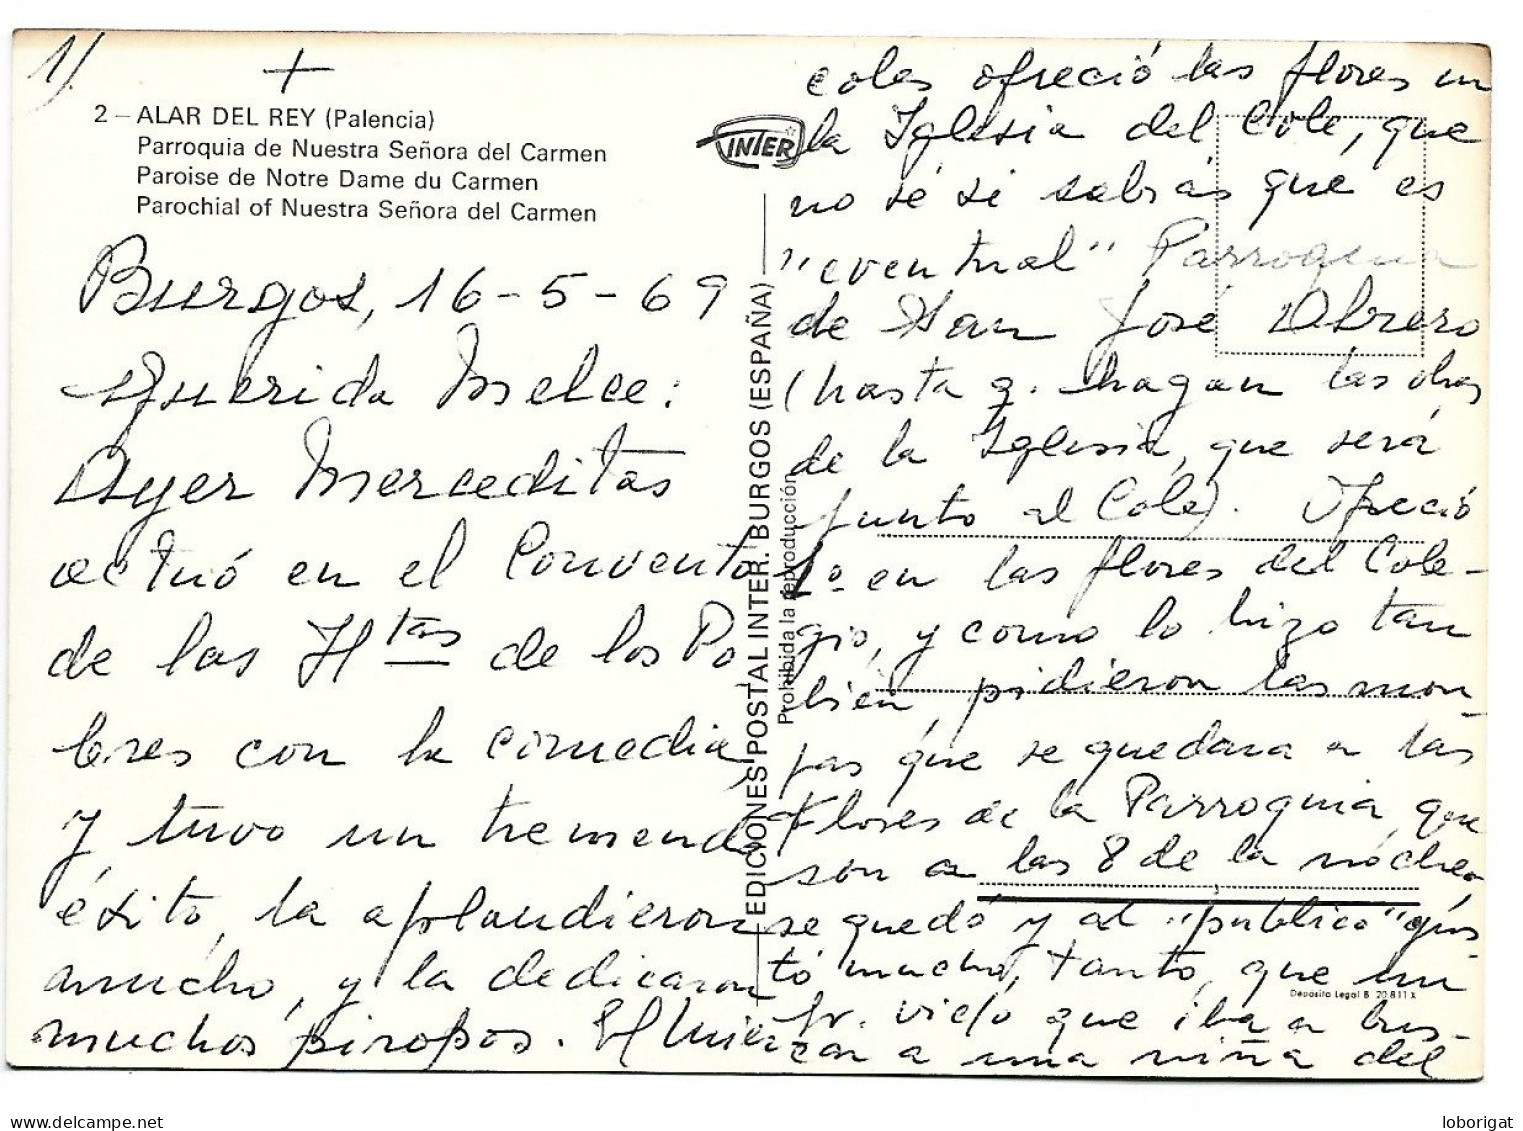 1).
+
2 – ALAR DEL REY (Palencia)
Parroquia de Nuestra Señora del Carmen
Paroise de Notre Dame du Carmen
Parochial of Nuestra Señora del Carmen
Burgos, 16-5-69
Querida Melce:
Ayer Merceditas
actuó en el Convento
de las Htas de los Po
bres con la comedia,
y tuvo un tremendo
éxito, la aplaudieron
mucho, y la dedicaron
muchos piropos. El Miér
INTER
EDICIONES POSTAL INTER. BURGOS (ESPAÑA)
Prohibida la reproducción
coles ofreció las flores en
la Iglesia del Cole, que
no sé si sabrás que es
"eventual" Parroquia
de San José Obrero
(hasta q. hagan las obras
de la Iglesia, que será
junto al Cole). Ofreció
1º en las flores del Cole-
gio, y como lo hizo tan
bien, pidieron las mon-
jas que se quedara a las
Flores de la Parroquia, que
son a las 8 de la noche,
se quedó y al "público" gus
tó mucho, tanto, que un
Sr. vicío que iba a bus-
car a una niña del
Depósito Legal B. 20.811 X
loborigat
delcampe.net